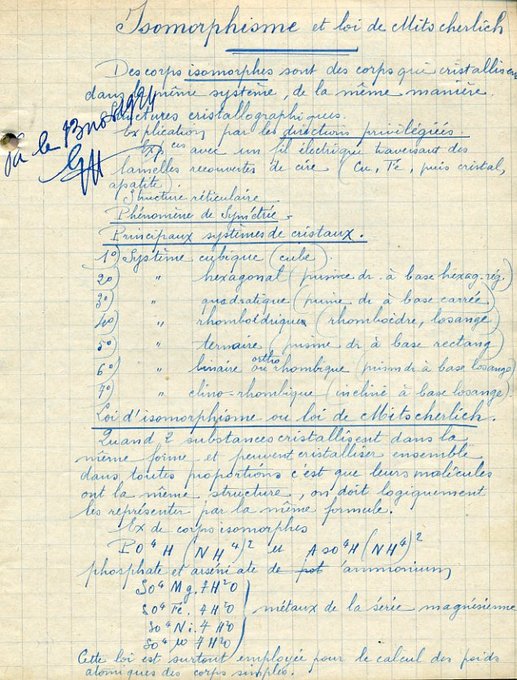 Isomorphisme et loi de Mitscherlich
Des corps isomorphes sont des corps qui cristallisent
dans le même système, de la même manière.
structures cristallographiques.
Explication par les directions privilégiées.
Exp ces avec un fil électrique traversant des
lamelles recouvertes de cire (Cu, Fe, puis cristal,
apatite)
Structure réticulaire
Phénomène de Symétrie.
Vu le 13 nov 1924
Principaux systèmes de cristaux.
1°) Système cubique (cube)
2°) " hexagonal (prisme dr. à base hexag. rég.)
3°) " quadratique (prisme dr à base carrée)
4°) " rhomboédrique (rhomboèdre, losange)
5°) " ternaire (prisme dr à base rectang)
6°) " binaire ou ortho rhombique (prism dr à base losange)
7°) " clino-rhombique (incliné à base losange)
Loi d'isomorphisme ou loi de Mitscherlich.
Quand 2 substances cristallisent dans la
même forme et peuvent cristalliser ensemble
dans toutes proportions c'est que leurs molécules
ont la même structure, on doit logiquement
les représenter par la même formule.
Ex de corps isomorphes
PO⁴H(NH⁴)² et AsO⁴H(NH⁴)²
phosphate et arséniate de d'ammonium
SO⁴Mg.7H²O
SO⁴Fe.7H²O
SO⁴Ni.7H²O
7H²O
métaux de la série magnésienne
Cette loi est surtout employée pour le calcul des poids
atomiques des corps simples.